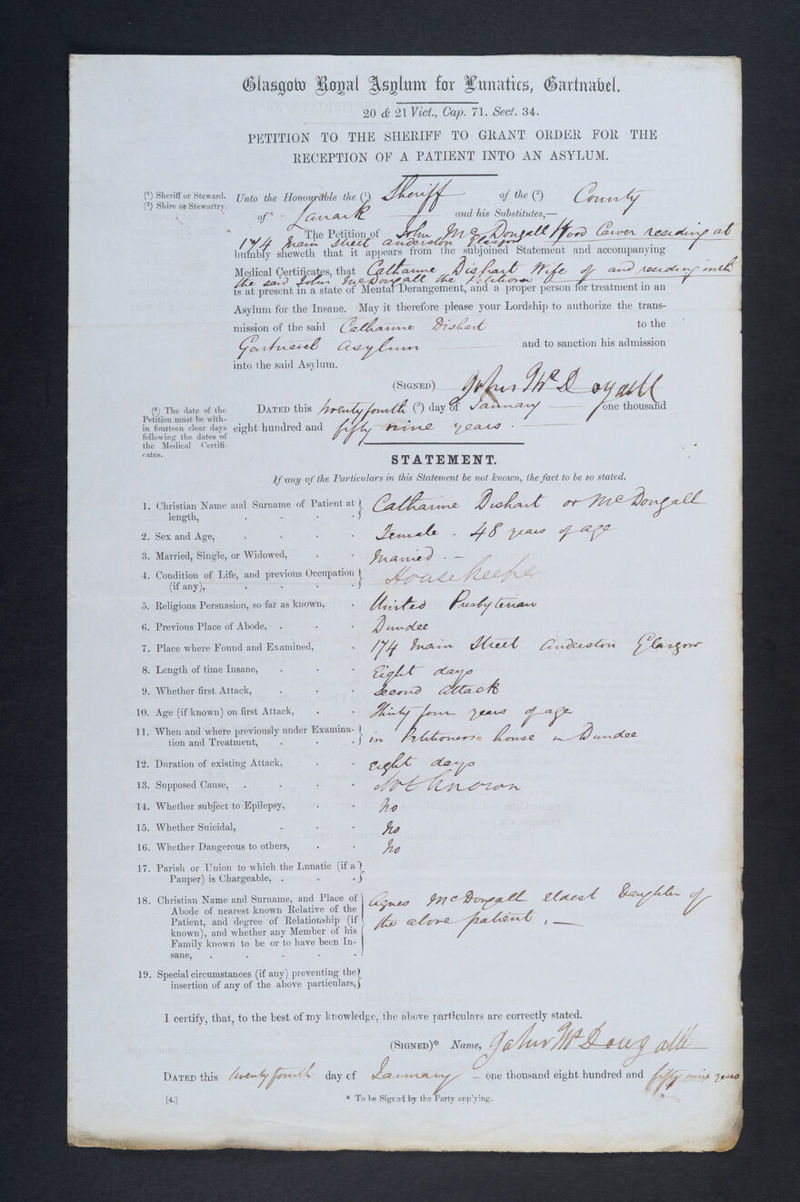 Glasgow Royal Asylum for Lunatics, Gartnabel.
20 & 21 Vict., Cap. 71. Sect. 34.
PETITION TO THE SHERIFF TO GRANT ORDER FOR THE
RECEPTION OF A PATIENT INTO AN ASYLUM.
(¹) Sheriff or Steward.
(²) Shire or Stewartry.
Unto the Honourable the (¹) Sheriff of the (²) County
of Lanark and his Substitutes,—
The Petition of John McDougall Wood Carver residing at
174 Main Street Anderston Glasgow
humbly sheweth that it appears from the subjoined Statement and accompanying
Medical Certificates, that Catharine Dishart Wife of and residing with
the said John McDougall the Petitioner
is at present in a state of Mental Derangement, and a proper person for treatment in an
Asylum for the Insane. May it therefore please your Lordship to authorize the trans-
mission of the said Catharine Dishart to the
Gartnavel Asylum and to sanction his admission
into the said Asylum.
(SIGNED) John McDougall
(³) The date of the
Petition must be with-
in fourteen clear days
following the dates of
the Medical Certifi-
cates.
DATED this twenty fourth (³) day of January one thousand
eight hundred and fifty nine years.
STATEMENT.
If any of the Particulars in this Statement be not known, the fact to be so stated.
1. Christian Name and Surname of Patient at
length, Catharine Dishart or McDougall
2. Sex and Age, Female . 48 years of age
3. Married, Single, or Widowed, Married . —
4. Condition of Life, and previous Occupation
(if any), Housekeeper
5. Religious Persuasion, so far as known, United Presbyterian
6. Previous Place of Abode, Dundee
7. Place where Found and Examined, 174 Main Street Anderston Glasgow
8. Length of time Insane, Eight days
9. Whether first Attack, Second attack
10. Age (if known) on first Attack, Thirty four years of age
11. When and where previously under Examina-
tion and Treatment, in Petitioners house in Dundee
12. Duration of existing Attack, Eight days
13. Supposed Cause, Not Known
14. Whether subject to Epilepsy, No
15. Whether Suicidal, No
16. Whether Dangerous to others, No
17. Parish or Union to which the Lunatic (if a
Pauper) is Chargeable,
18. Christian Name and Surname, and Place of
Abode of nearest known Relative of the
Patient, and degree of Relationship (if
known), and whether any Member of his
Family known to be or to have been In-
sane,
Agnes McDougall eldest Daughter of
the above patient , —
19. Special circumstances (if any) preventing the
insertion of any of the above particulars,
I certify, that, to the best of my knowledge, the above particulars are correctly stated.
(SIGNED)* Name, John McDougall
DATED this twenty fourth day of January — one thousand eight hundred and fifty nine years
[4.]
* To be Signed by the Party applying.